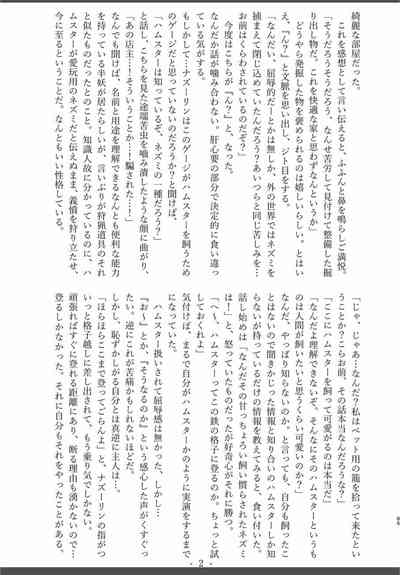 綺麗な部屋だった。
これを感想として言い伝えると、ふふんと鼻を鳴らしご満悦。
「そうだろうそうだろう、なんせ苦労して見付けて整備した掘
り出し物だ。これを快適な家と思わずなんというか」
どうやら発掘した物を褒められるのは嬉しいらしい。とはい
え、「ん？」と文脈を思い出し、ジト目をする。
「なんだい、屈辱的だーとかは無しか、外の世界ではネズミを
捕まえて閉じ込めていたんだろう？あいつらと同じ苦しみを…
お前はくらわされているのだぞ？」
今度はこちらが「ん？」と、なった。
なんだか話が噛み合わない。肝心要の部分で決定的に食い違っ
ている気がする。
もしかして…ナズーリンはこのゲージがハムスターを飼うため
のゲージだと思っていないのだろうか？と聞けば、
「ハムスターは知っているぞ、ネズミの一種だろう？」
と話し、こちらを見た途端苦虫を噛み潰したような顔に曲がり、
「あの店主…！そういうことか…騙された…！」
なんでも聞けば、名前と用途を理解できるなんとも便利な能力
を持っている半妖が居たらしいが、言いぶりが狩猟道具のそれ
と似たものだったとのこと。知識人故に分かっているのに、ハ
ムスターが愛玩用のネズミだと伝えぬまま、義憤を狩り立たせ、
今に至るということだ。なんともいい性格している。
「じ、じゃあ…なんだ？私はペット用の籠を拾って来たとい
うことか？こらお前、その話本当なんだろうな？」
「ここにハムスターを飼って可愛がるのは本当だ」
「なんだよ理解できないぞ、そんなにそのハムスターというも
のは人間が飼いたいと思うくらい可愛いのか？」
なんだ、やっぱり知らないのか、と言っても、自分も飼ったこ
とはないので聞きかじった情報と知り合いのハムスターしか知
らないが持っているだけの情報を教えてみると、食い付いた。
話し始めは「なんだその甘っちょろい飼い慣らされたネズミ
は！」と、怒っていたものだったが好奇心がそれに勝つ。
「へ～、ハムスターってこの鉄の格子に登るのか。ちょっと試
しておくれよ」
気付けば、まるで自分がハムスターかのように実演をするまで
になっていた。
ハムスター扱いされて屈辱感は無かった、しかし…
「おぉ」とか、「そうなるのか」という感心した声がくすぐっ
たい。逆にこれが苦痛かもしれないほどだ。
しかし、恥ずかしがる自分とは真逆に主人は…、
「ほらほらここまで登ってごらんよ」と、ナズーリンの指がつ
いっと格子越しに差し出されて、もう乗り気でしかない。
頑張ればすぐに登れる距離にあり、断る理由も湧かないので…
登るしかなかった。それに自分もそれをやったことがある、
- 2 -